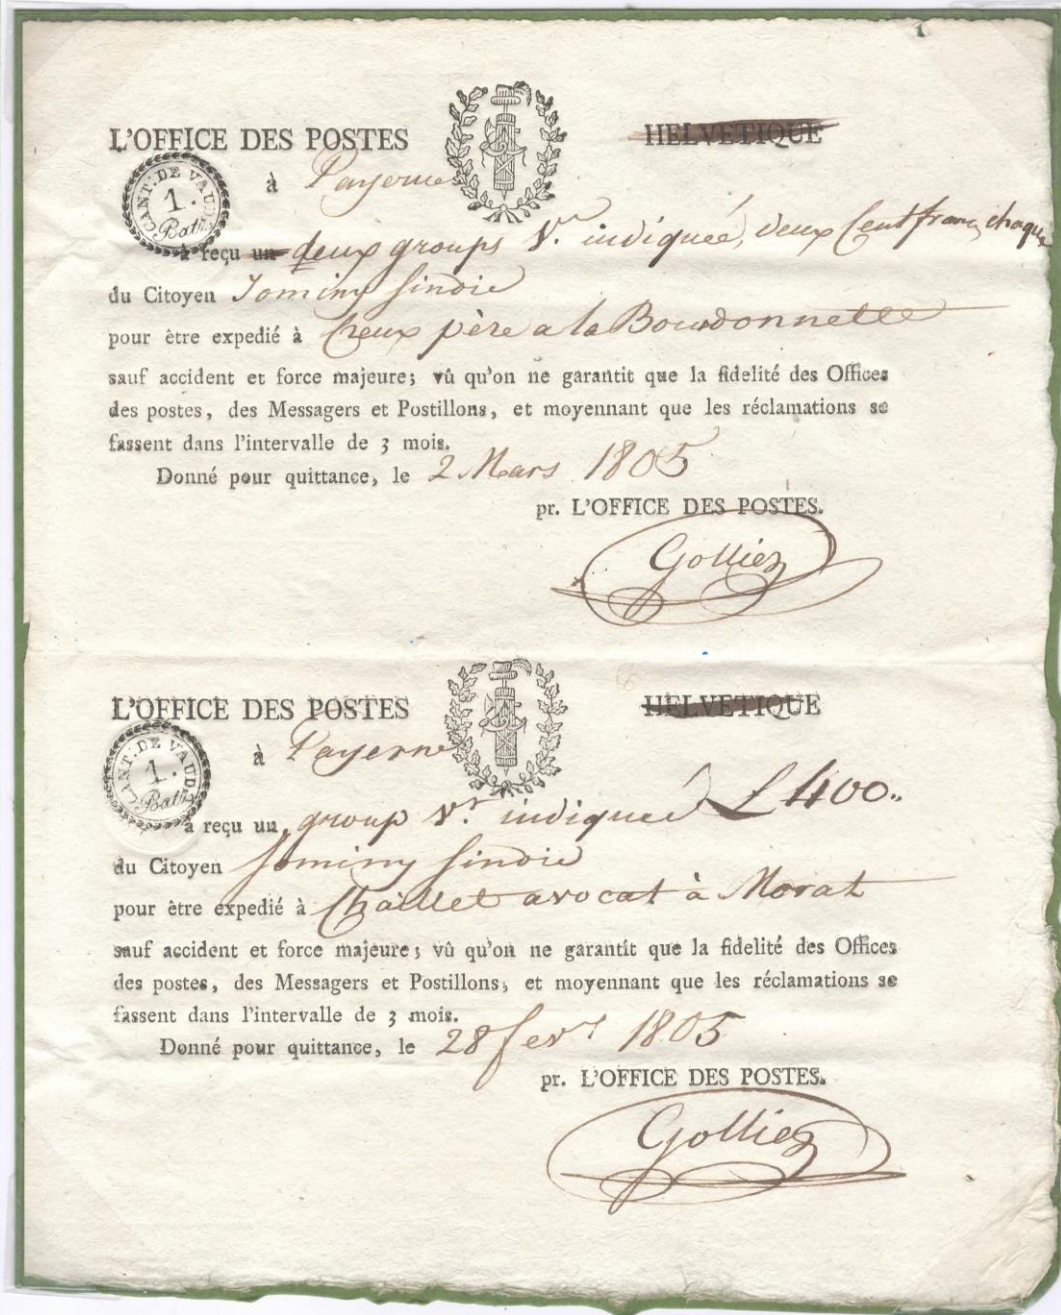 L'OFFICE DES POSTES HELVETIQUE
à Payerne
CANT: DE VAUD
1.
Batz
a reçu un deux groups Vr. indiquée, deux Cent francs chaque
du Citoyen Jominy sindic
pour être expedié à Creux père a la Bourdonnette
sauf accident et force majeure; vû qu'on ne garantit que la fidelité des Offices
des postes, des Messagers et Postillons, et moyennant que les réclamations se
fassent dans l'intervalle de 3 mois.
Donné pour quittance, le 2 Mars 1805
pr. L'OFFICE DES POSTES.
Golliez
L'OFFICE DES POSTES HELVETIQUE
à Payerne
CANT: DE VAUD
1.
Batz
a reçu un group Vr. indiquée L 400..
du Citoyen Jominy sindic
pour être expedié à Chaillet avocat à Morat
sauf accident et force majeure; vû qu'on ne garantit que la fidelité des Offices
des postes, des Messagers et Postillons, et moyennant que les réclamations se
fassent dans l'intervalle de 3 mois.
Donné pour quittance, le 28 fevr 1805
pr. L'OFFICE DES POSTES.
Golliez